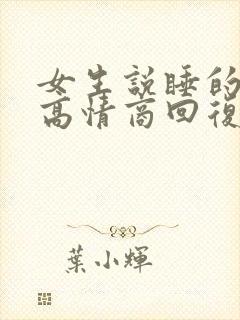 女生説睡的
高情商回復
葉小輝